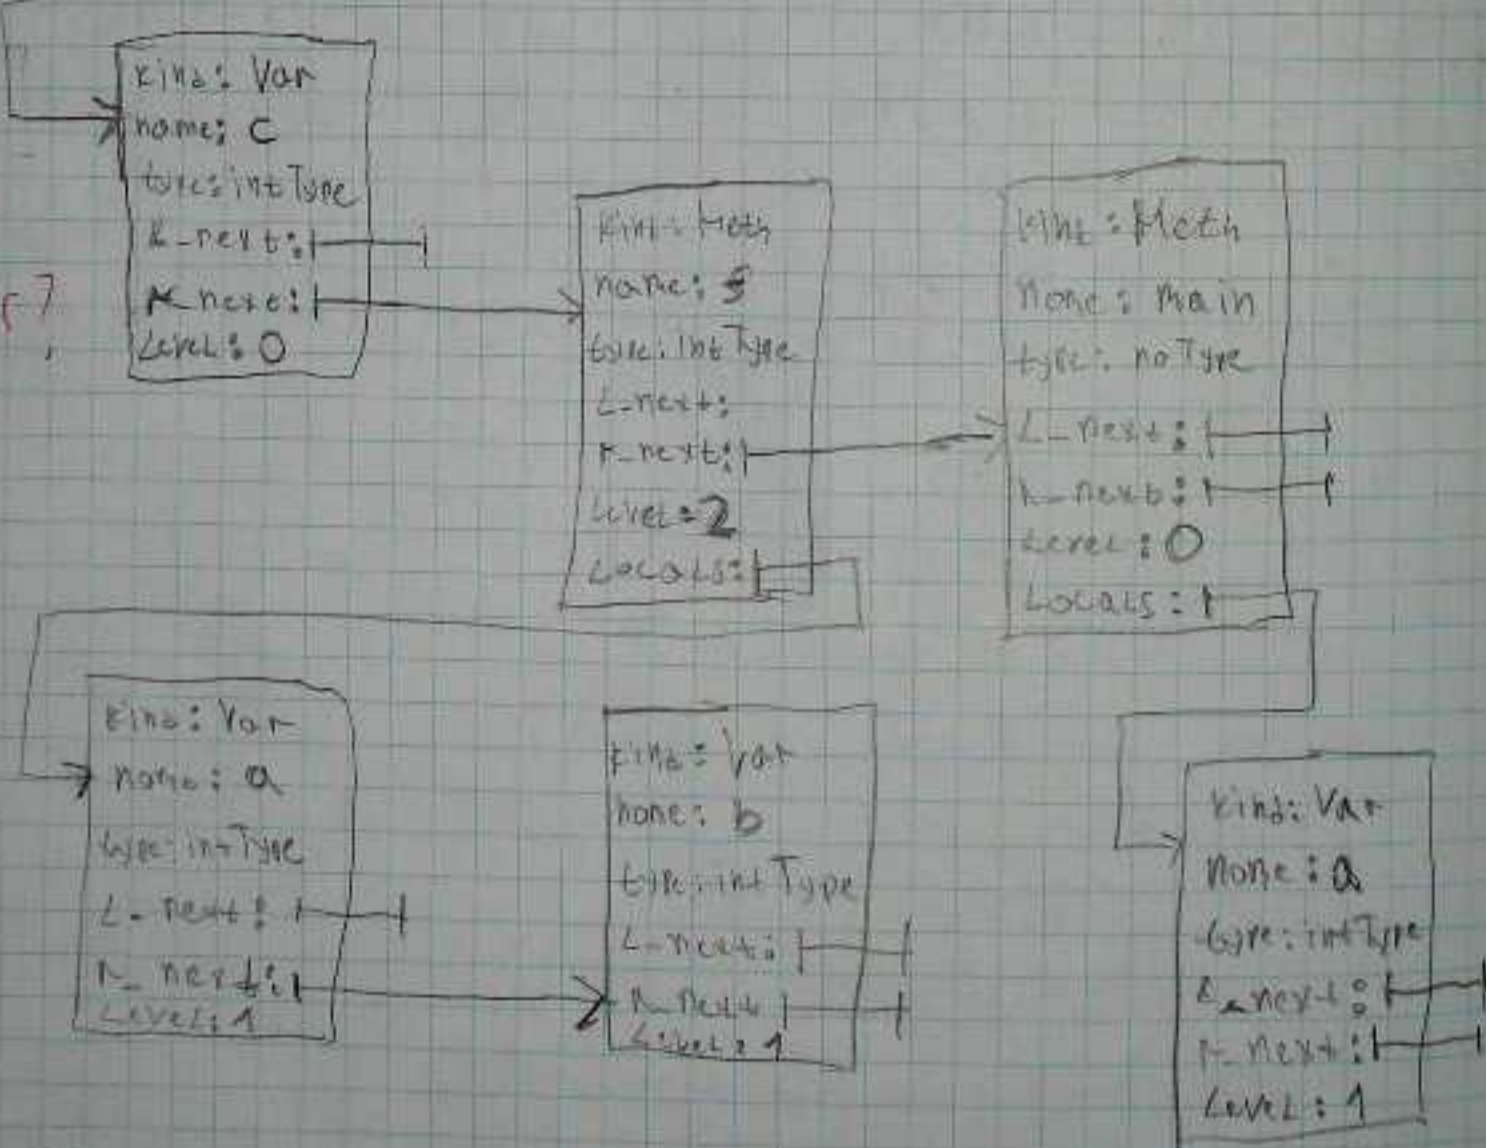 kind: Var
name: c
type: intType
L_next:
R_next:
Level: 0
?
kind: Meth
name: f
type: intType
L_next:
R_next:
Level: 2
Locals:
kind: Meth
name: main
type: noType
L_next:
R_next:
Level: 0
Locals:
kind: Var
name: a
type: intType
L_next:
R_next:
Level: 1
kind: Var
name: b
type: intType
L_next:
R_next
Level: 1
kind: Var
name: a
type: intType
L_next:
R_next:
Level: 1